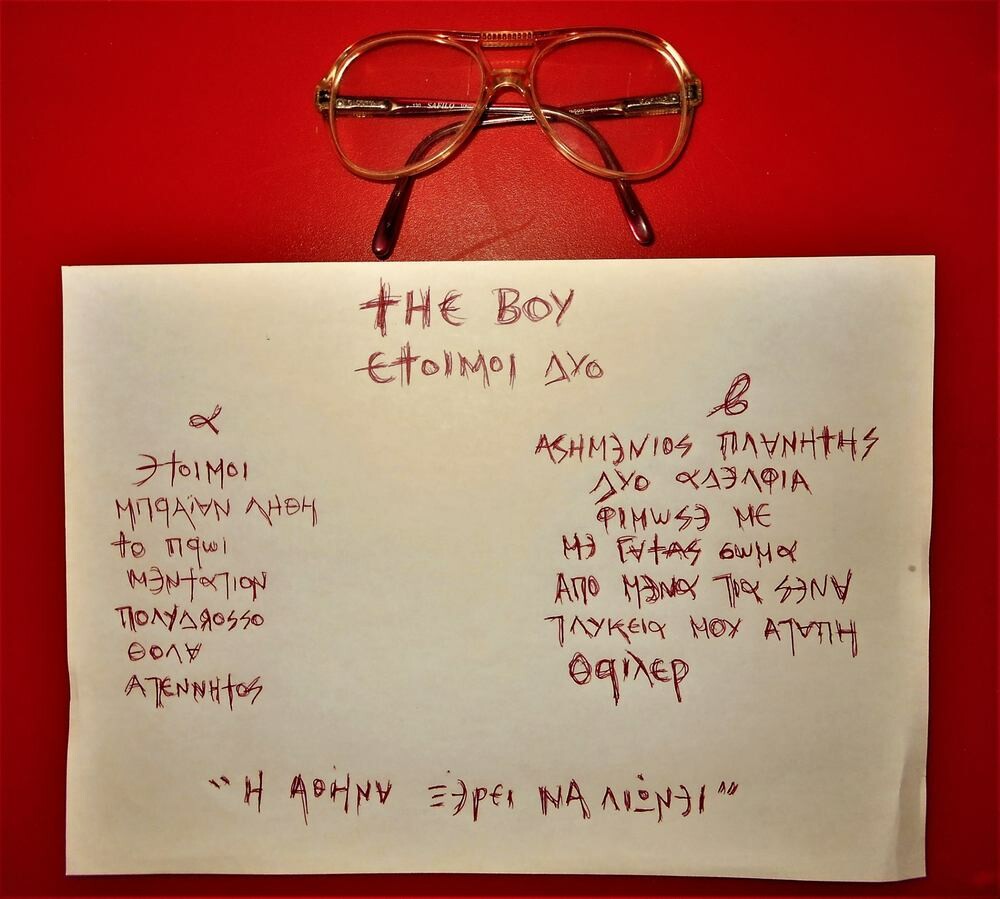 SAFILO
THE BOY
ΕΤΟΙΜΟΙ ΔΥΟ
α
ΕΤΟΙΜΟΙ
ΜΠΡΑΪΑΝ ΛΗΘΗ
ΤΟ ΠΡΩΙ
ΜΕΝΤΑΓΙΟΝ
ΠΟΛΥΔΡΟSSO
ΘΟΛΑ
ΑΓΕΝΝΗΤΟS
β
ΑSΗΜΕΝΙΟS ΠΛΑΝΗΤΗS
ΔΥΟ αΔΕΛΦΙΑ
ΦΙΜΩSΕ ΜΕ
ΜΕ σωμα
ΑΠΟ ΜΕΝΑ ΓΙΑ SΕΝΑ
ΓΛΥΚΕΙΑ ΜΟΥ ΑΓΑΠΗ
ΘΡΙΛΕΡ
"Η ΑΘΗΝΑ ΞΕΡΕΙ ΝΑ ΛΙΩΝΕΙ"